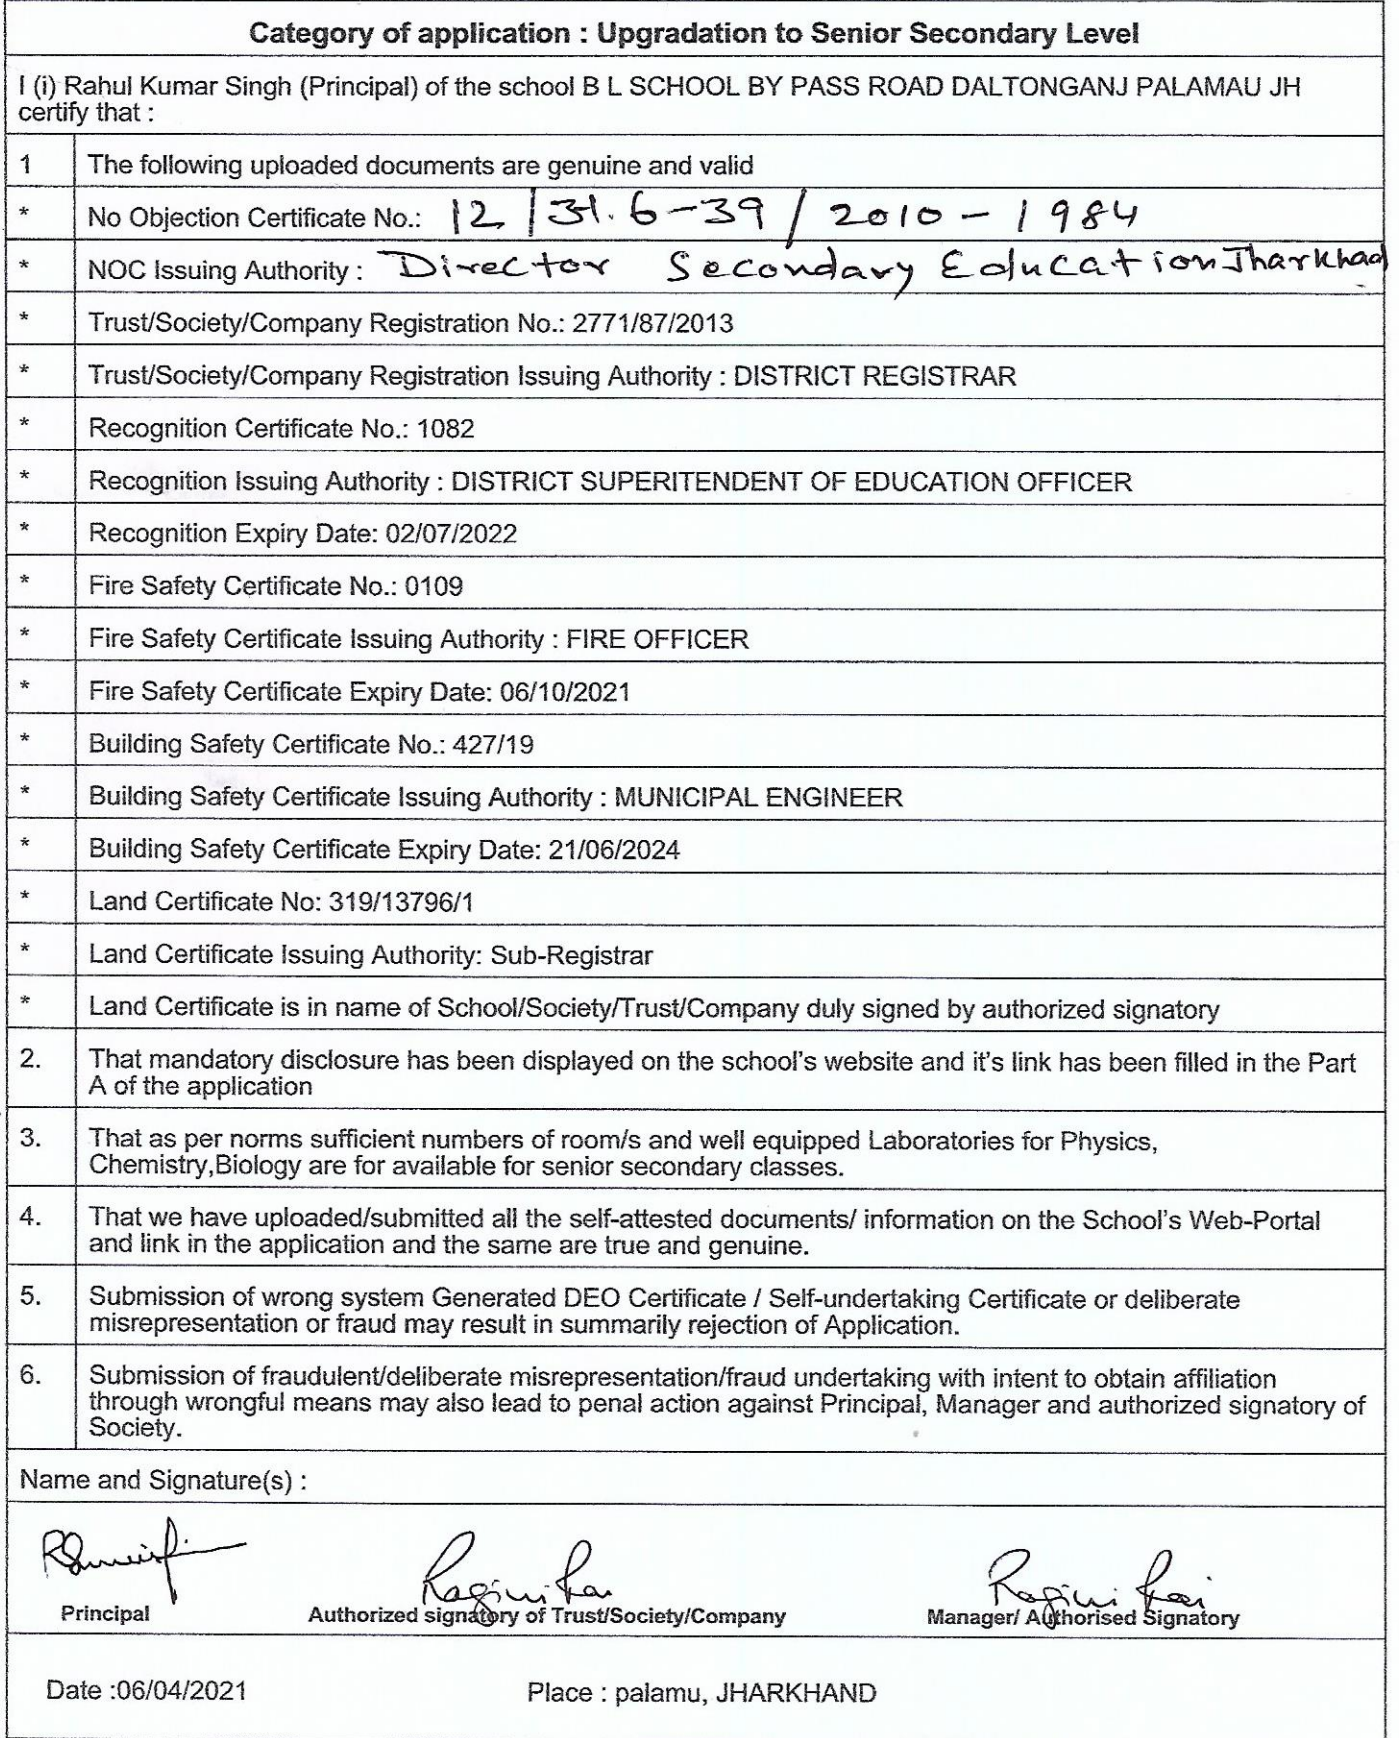 Category of application : Upgradation to Senior Secondary Level
I (i) Rahul Kumar Singh (Principal) of the school B L SCHOOL BY PASS ROAD DALTONGANJ PALAMAU JH
certify that :
1 The following uploaded documents are genuine and valid
* No Objection Certificate No.: 12/31.6-39/2010-1984
* NOC Issuing Authority : Director Secondary Education Jharkhad
* Trust/Society/Company Registration No.: 2771/87/2013
* Trust/Society/Company Registration Issuing Authority : DISTRICT REGISTRAR
* Recognition Certificate No.: 1082
* Recognition Issuing Authority : DISTRICT SUPERITENDENT OF EDUCATION OFFICER
* Recognition Expiry Date: 02/07/2022
* Fire Safety Certificate No.: 0109
* Fire Safety Certificate Issuing Authority : FIRE OFFICER
* Fire Safety Certificate Expiry Date: 06/10/2021
* Building Safety Certificate No.: 427/19
* Building Safety Certificate Issuing Authority : MUNICIPAL ENGINEER
* Building Safety Certificate Expiry Date: 21/06/2024
* Land Certificate No: 319/13796/1
* Land Certificate Issuing Authority: Sub-Registrar
* Land Certificate is in name of School/Society/Trust/Company duly signed by authorized signatory
2. That mandatory disclosure has been displayed on the school's website and it's link has been filled in the Part
A of the application
3. That as per norms sufficient numbers of room/s and well equipped Laboratories for Physics,
Chemistry,Biology are for available for senior secondary classes.
4. That we have uploaded/submitted all the self-attested documents/ information on the School's Web-Portal
and link in the application and the same are true and genuine.
5. Submission of wrong system Generated DEO Certificate / Self-undertaking Certificate or deliberate
misrepresentation or fraud may result in summarily rejection of Application.
6. Submission of fraudulent/deliberate misrepresentation/fraud undertaking with intent to obtain affiliation
through wrongful means may also lead to penal action against Principal, Manager and authorized signatory of
Society.
Name and Signature(s) :
Ragini Rai Ragini Rai
Principal Authorized signatory of Trust/Society/Company Manager/ Authorised Signatory
Date :06/04/2021 Place : palamu, JHARKHAND